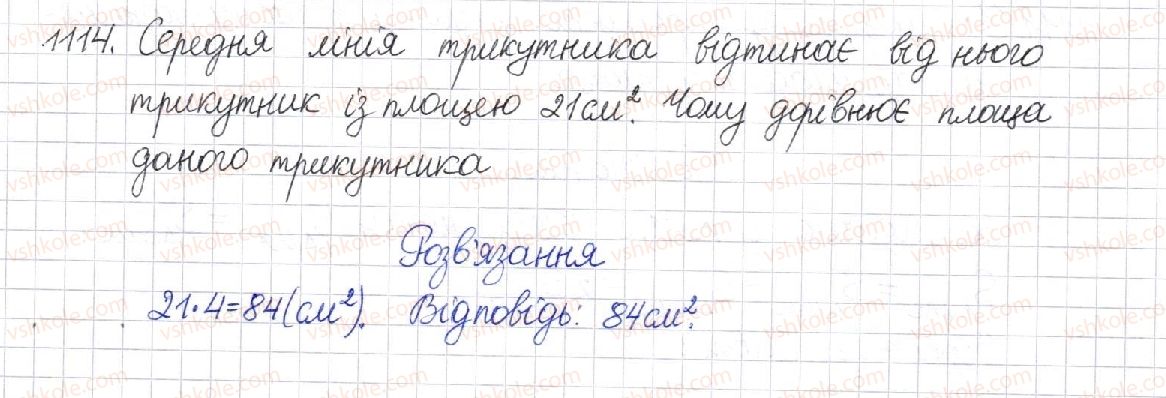 1114. Середня лінія трикутника відтинає від нього
трикутник із площею 21 см². Чому дорівнює площа
даного трикутника
Розв'язання
21·4=84(см²). Відповідь: 84 см².